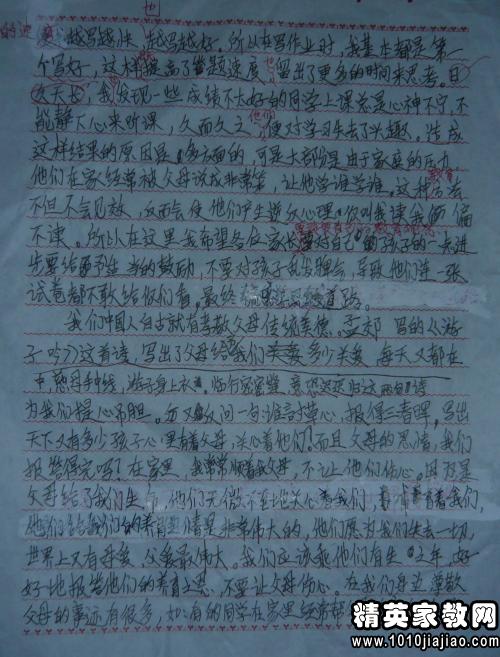 也
的进
越写越快,越写越好。所以在写作业时,我基本都是第一
个写好,这样提高了答题速度,留出了更多的时间来思考。日
久天长,我发现一些成绩不太好的同学上课总是心神不宁,不
他们
能静下心来听课,久而久之,便对学习失去了兴趣。造成
这样结果的原因是多方面的,可是大部分是由于家庭的压力。
教育
他们在家经常被父母说成非常笨,让他学谁学谁。这种方法
不但不会见效,反而会使他们产生逆反心理。你叫我读我偏偏
不读。所以在这里我希望各位家长对自己的孩子的一点进
步要给予适当的鼓励,不要对孩子乱发脾气,导致他们连一张
试卷都不敢给你们看。最终
我们中国人自古就有孝敬父母传统美德。孟郊写的《游
子吟》这首诗,写出了父母给我们多少关爱,每天又都在
中慈母手线,游子身上衣。临行密密缝,意恐迟迟归这两句诗
为我们提心吊胆。后又以问句谁言寸草心,报得三春晖,写出
天下又有多少孩子心里有着父母,关心着他们!而且父母的恩情,我们
报答得完吗?在家里,我常常顺着我父母,不让他们伤心。因为是
父母给了我们生命,他们无微不至地关心着我们,养育着我们,
他们给我们的养育恩情是非常伟大的,他们愿为我们失去一切,
世界上只有母爱、父爱最伟大。我们应该乘他们有生之年,好
好地报答他们的养育之恩,不要让父母伤心。在我们身边孝敬
父母的事还有很多,如:有的同学在家里经常帮
精英家教网
www.1010jiajiao.com